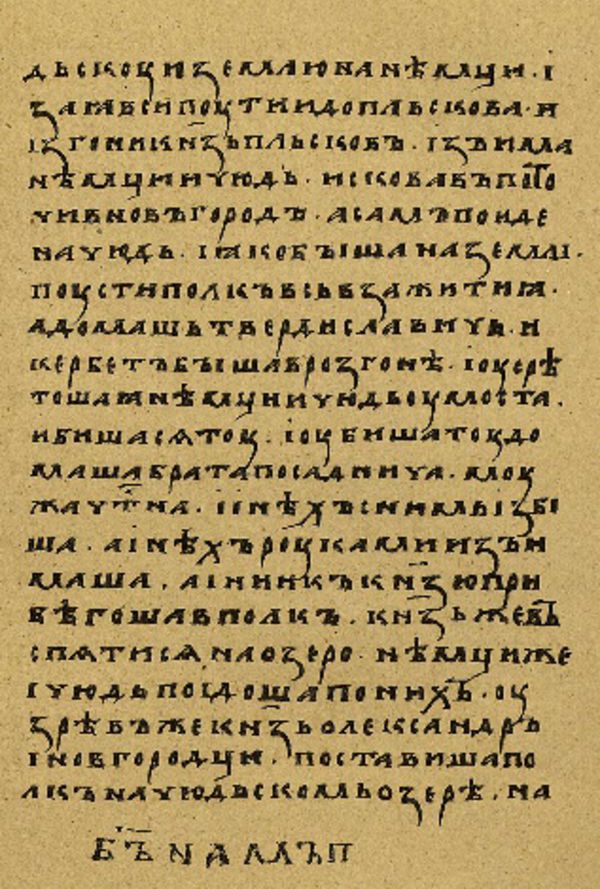 дьскоуи землю на нѣмци · і
заꙗ вси поути и до пльскова · и
ізгони кн҃зь пльсковъ · ізъима
нѣмци и чюдь · и сковавъ пото
чи в новъгородъ · а самъ поиде
на чюдь · і ꙗко быша на земли ·
поусти полкъ всь в зажитиꙗ ·
а домашь твердиславичь · и
кербетъ быша в розгонѣ · і оусрѣ
тоша ꙗ нѣмци и чюдь оу моста ·
и бишасѧ тоу · і оубиша тоу до
маша брата посаднича · моу
жа чт҃на · і інѣхъ с нимь ізби
ша · а інѣхъ роуками изъи
маша · а інии къ кн҃зю при
бѣгоша в полкъ · кн҃зь же въ
спѧтисѧ на озеро · нѣмци же
і чюдь поідоша по нихъ · оу
зрѣвъ же кн҃зь олександръ
і новгородци · поставиша по
лкъ на чюдьскомь озерѣ · на
б҃ъ намъ п